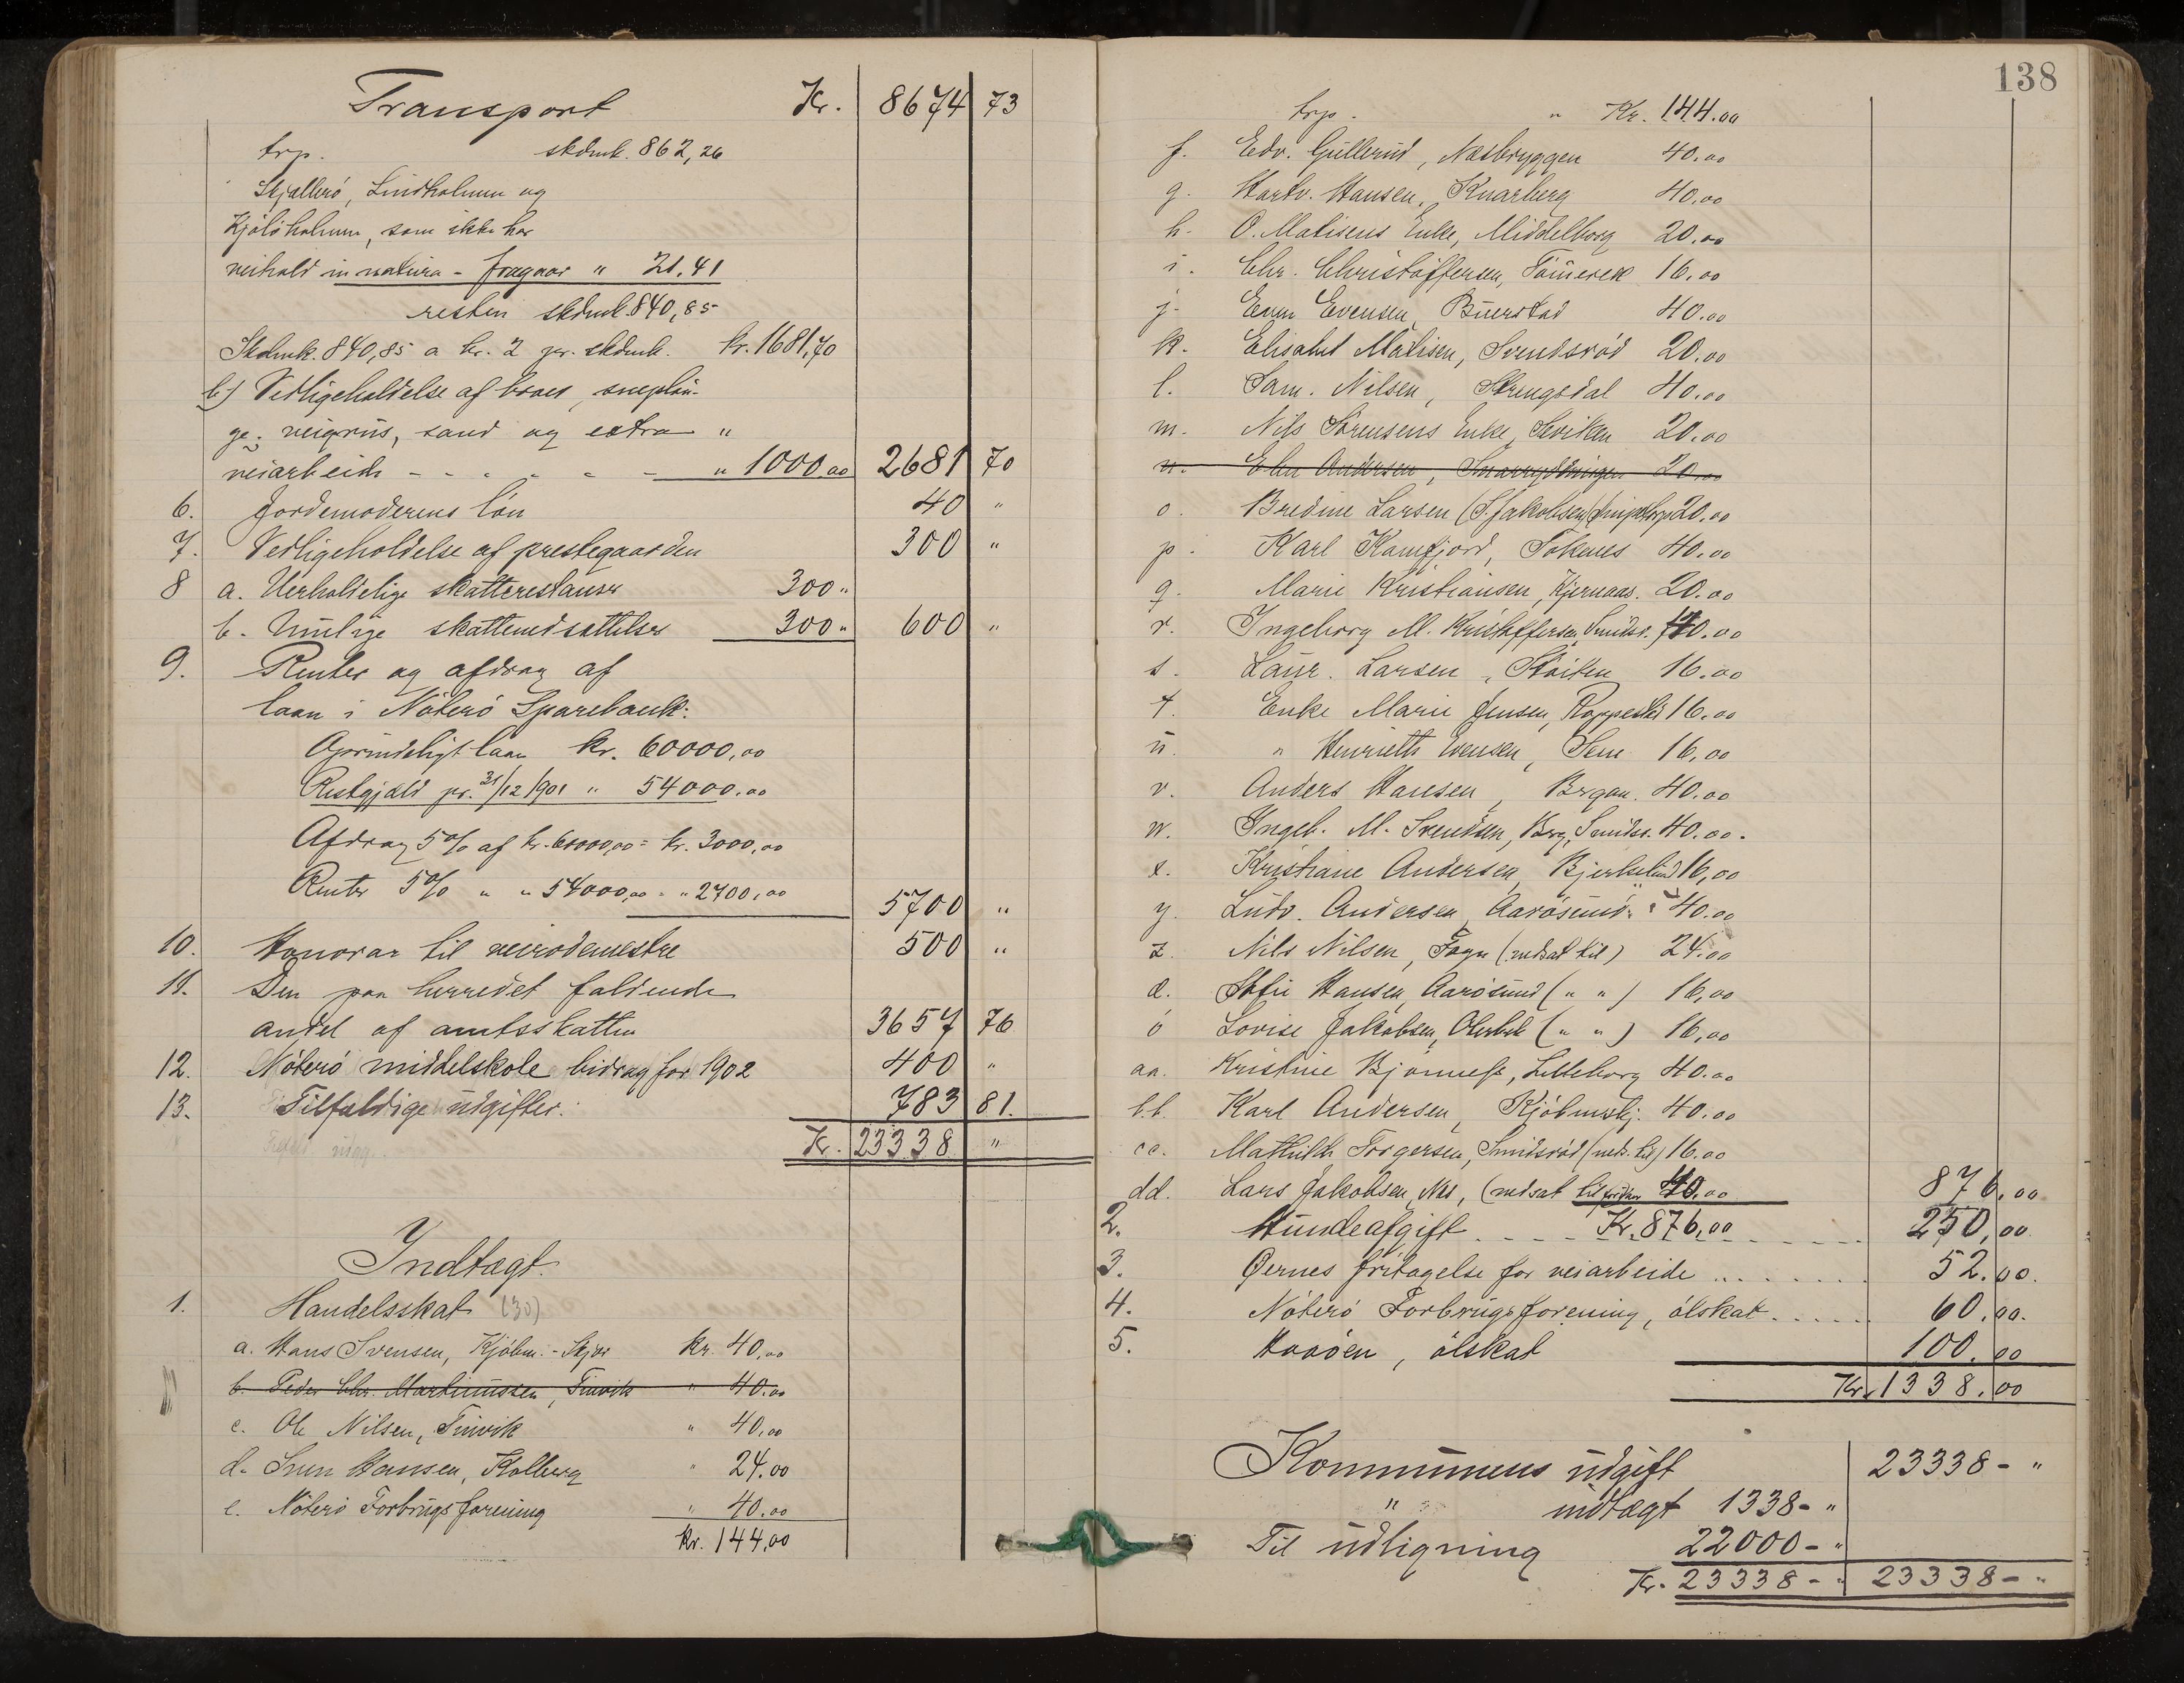 Transport Kr. 8674 73
trp. skdmk. 862,26
Skjællerö, Lindholmen og
Kjöløholmen, som ikke har
veihold in natura - fragaar " 21.41
resten skdmk. 840,85
Skdmk. 840,85 a kr. 2 pr. skdmk. kr. 1681,70
b) Vedligeholdelse af broer, sneplöi-
ge, veigrus, sand og extra "
veiarbeide - - - - - - " 1000.00 2681 70
6. Jordemoderens lön 40 "
7. Vedligeholdelse af prestegaarden 300 "
8 a. Uerholdelige skatterestanser 300 "
b. Mulige skattenedsættelser 300 " 600 "
9. Renter og afdrag af
laan i Nöterö Sparebank:
Oprindeligt laan kr. 60000,00
Restgjæld pr. 31/12 1901 " 54000.00
Afdrag 5% af kr. 60000,00 = kr. 3000,00
Renter 5% " " 54000,00 = " 2700,00 5700 "
10. Honorar til veirodemestre 500 "
11. Den paa herredet faldende
andel af amtsskatten 3657 76
12. Nöterö middelskole bidrag for 1902 400 "
13. Tilfældige udgifter. 783 81.
Kr. 23338 "
Indtægt.
1. Handelsskat (30)
a. Hans Svensen, Kjöbm.-Skjær kr. 40,00
b. Peder Chr. Martinussen, Tinvik " 40.00
c. Ole Nilsen, Tinvik " 40,00
d. Sven Hansen, Kolberg " 24.00
e. Nöterö Forbrugsforening " 40.00
kr. 144,00
138
trp. " Kr. 144.00
f. Edv. Gullerud, Næsbryggen 40.00
g. Hartv. Hansen, Knarberg 40.00
h. O. Matisens Enke, Middelborg 20.00
i. Chr. Christoffersen, 16.00
j. Even Evensen, Buerstad 40.00
k. Elisabet Matisen, Svendsröd 20.00
l. Sam. Nilsen, Strengsdal 40.00
m. Nils Sörensens Enke, 20.00
n. Andersen, 20.00
o. Bredine Larsen (S. Jakobsen) 20.00
p. Karl Kamfjord, Tokenes 40.00
q. Marie Kristiansen, Kjernaas. 20.00
r. Ingeborg M. Kristoffersen, Smidsr. 40.00
s. Laur. Larsen, 16.00
t. Enke Marie Jensen, 16.00
u. " Henriette Evensen, Sem 16,00
v. Anders Hansen, Bergan. 40.00
w. Ingeb. M. Svendsen, Berg, Smidsr. 40.00.
x. Kristiane Andersen, Bjerkelund 16,00
y. Ludv. Andersen, Aarösund " 40.00
z. Nils Nilsen, Fagn (nedsat til) 24.00
æ. Sofie Hansen, Aarösund ( " " ) 16,00
ö Lovise Jakobsen, ( " " ) 16,00
aa. Kristine Bjönness, Lilleborg 40.00
b.b. Karl Andersen, Kjöbmskj. 40.00
cc. Mathilde Torgersen, Smidsröd (neds. til) 16.00
dd. Lars Jakobsen, Nes, (nedsat til 40,00 876,00
2. Hundeafgift Kr. 876,00 250,00
3. Øernes fritagelse for veiarbeide 52.00.
4. Nöterö Forbrugsforening, ölskat 60.00.
5. Haaöen, ölskat 100.00
Kr. 1338.00
Kommunens udgift 23338 - "
" indtægt 1338 - "
Til udligning 22000 - "
Kr. 23338 - " 23338 - "